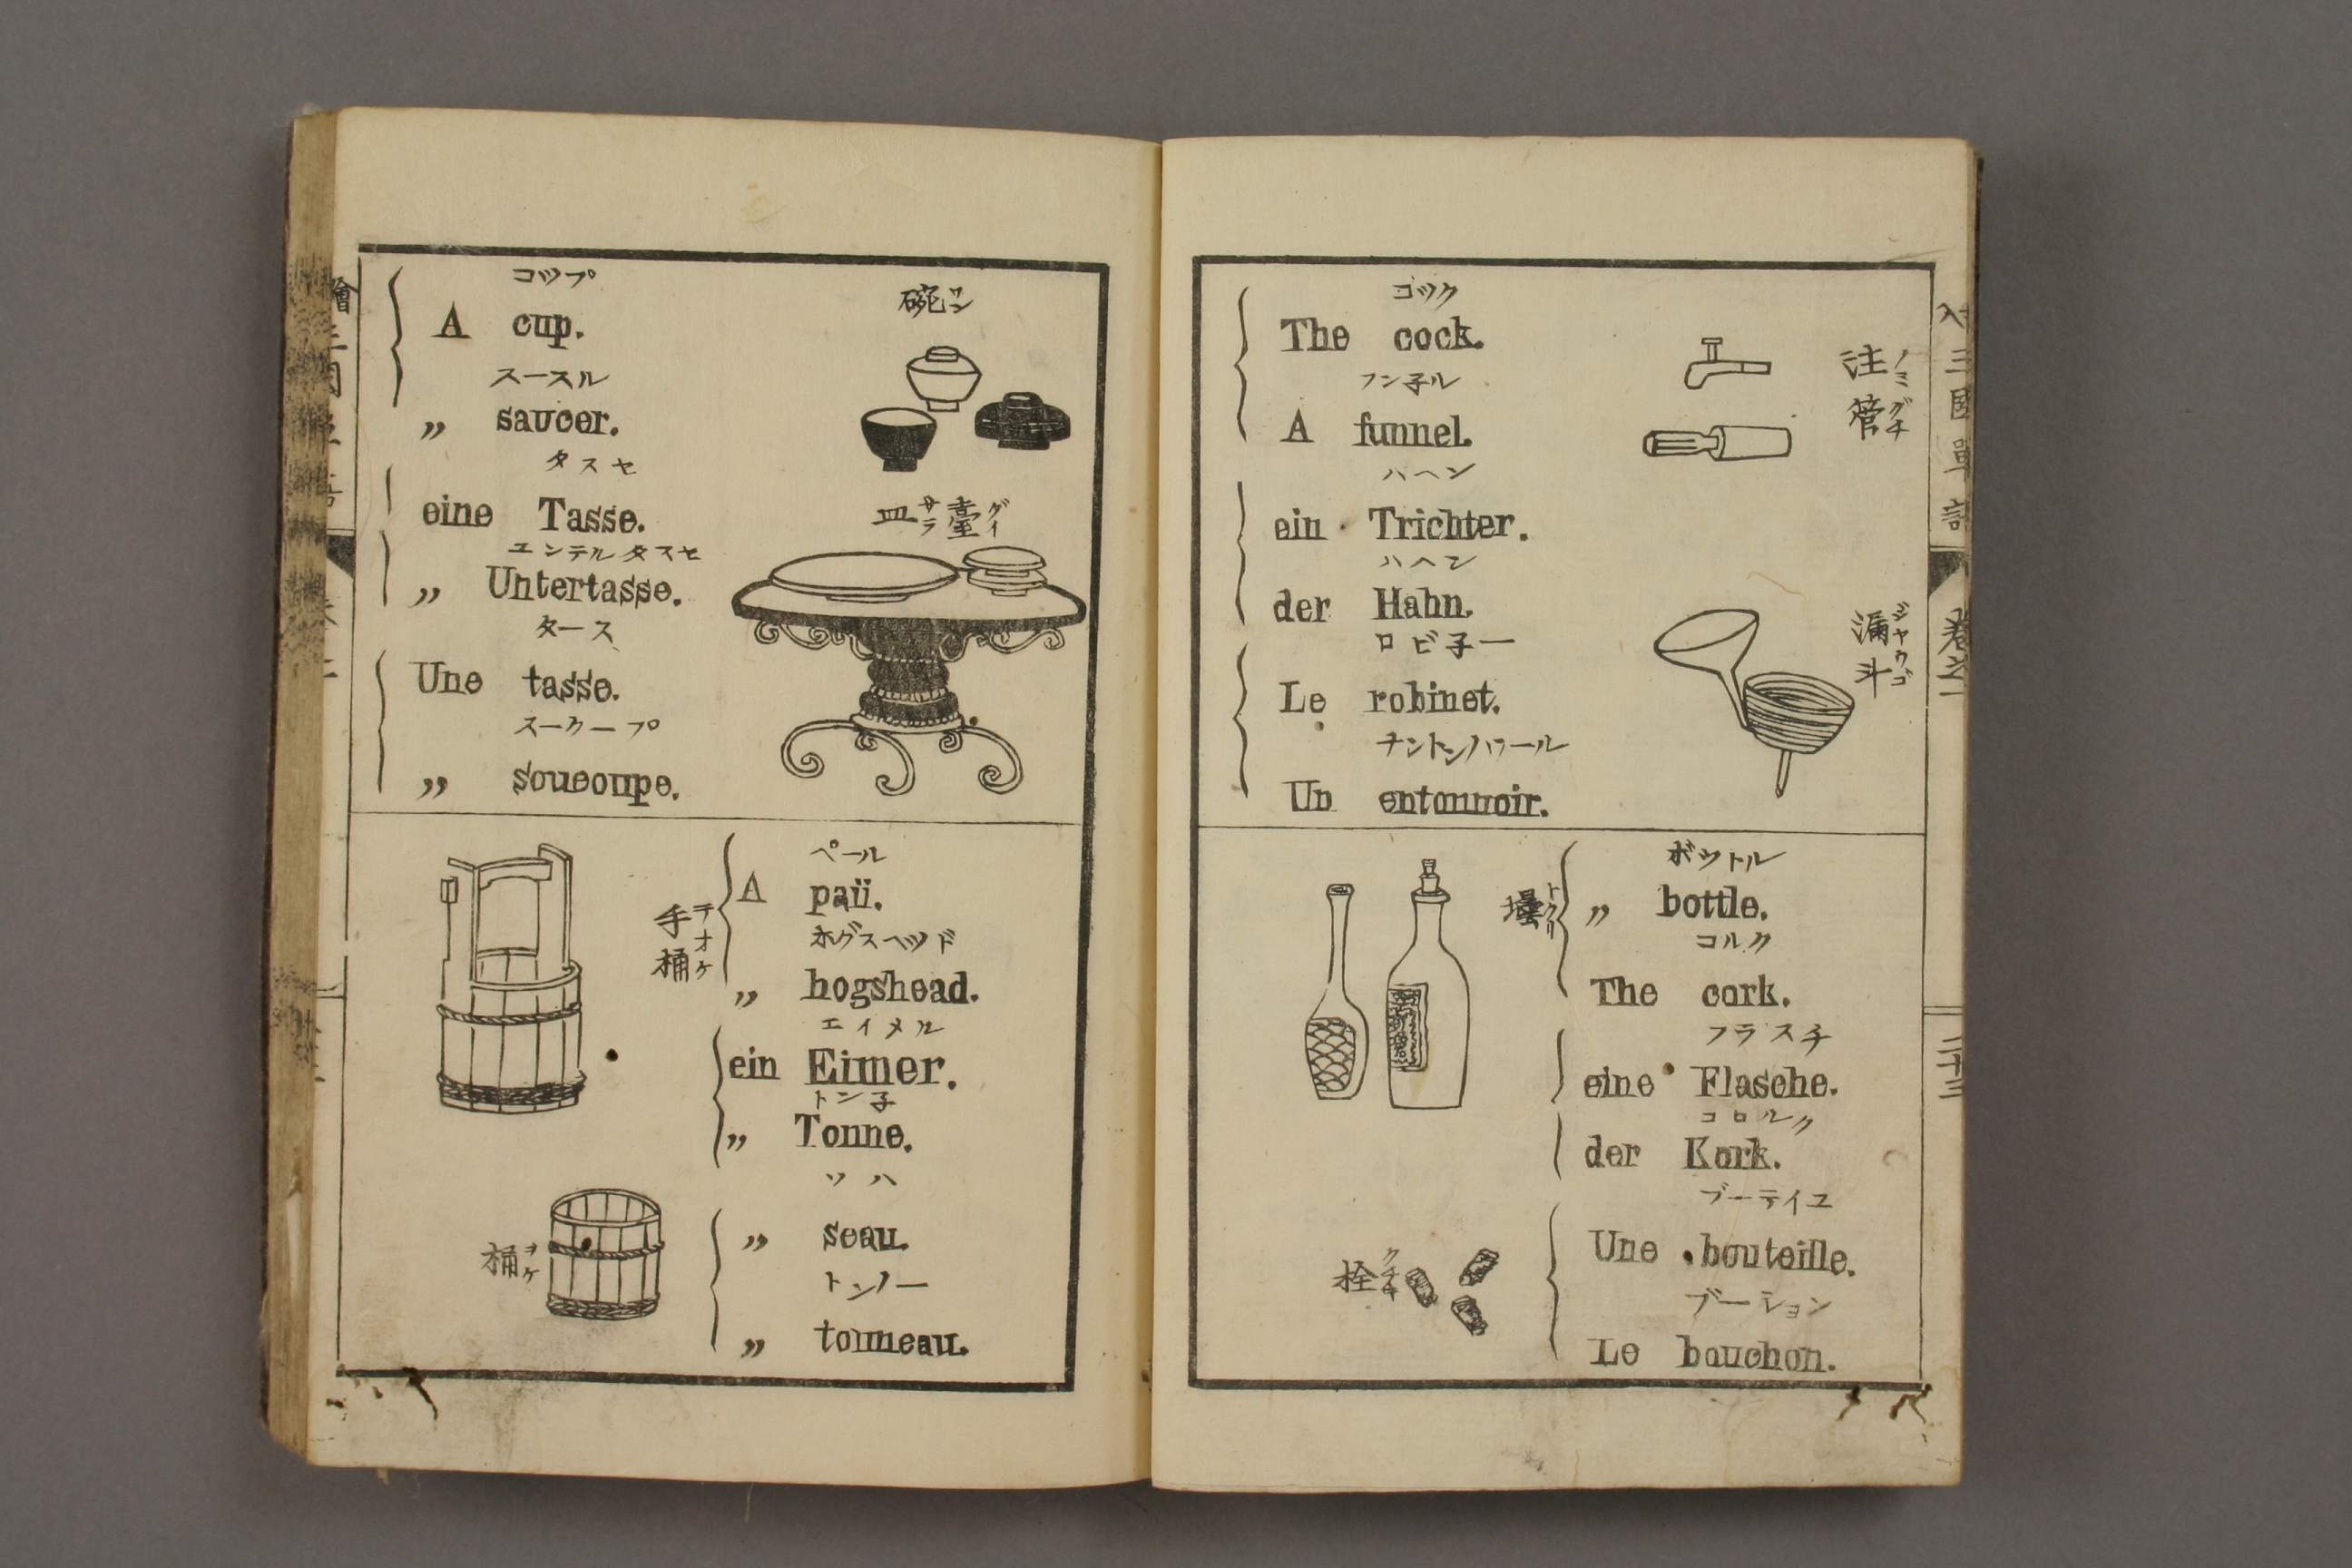 コツプ
A cup.
スースル
〃 saucer.
タスセ
eine Tasse.
ユンテルタスセ
〃 Untertasse.
タース
Une tasse.
スークープ
〃 soucoupe.
碗ワン
皿サラ臺ダイ
ペール
A pail.
ホグスヘツド
〃 hogshead.
エイメル
ein Eimer.
トン子
〃 Tonne.
ソハ
〃 seau.
トンノー
〃 tonneau.
手桶テオケ
桶ヲケ
コツク
The cock.
フン子ル
A funnel.
ハヘン
ein Trichter.
ハヘン
der Hahn.
ロビ子ー
Le robinet.
ナントンハワール
Un entonnoir.
注管ノミグチ
漏斗ジヤウゴ
ボツトル
〃 bottle.
コルク
The cork.
フラスチ
eine Flasche.
コロルク
der Kork.
ブーテイユ
Une bouteille.
ブーション
Le bouchon.
壜トクリ
栓クチキ
三國單語
卷之二
二十三